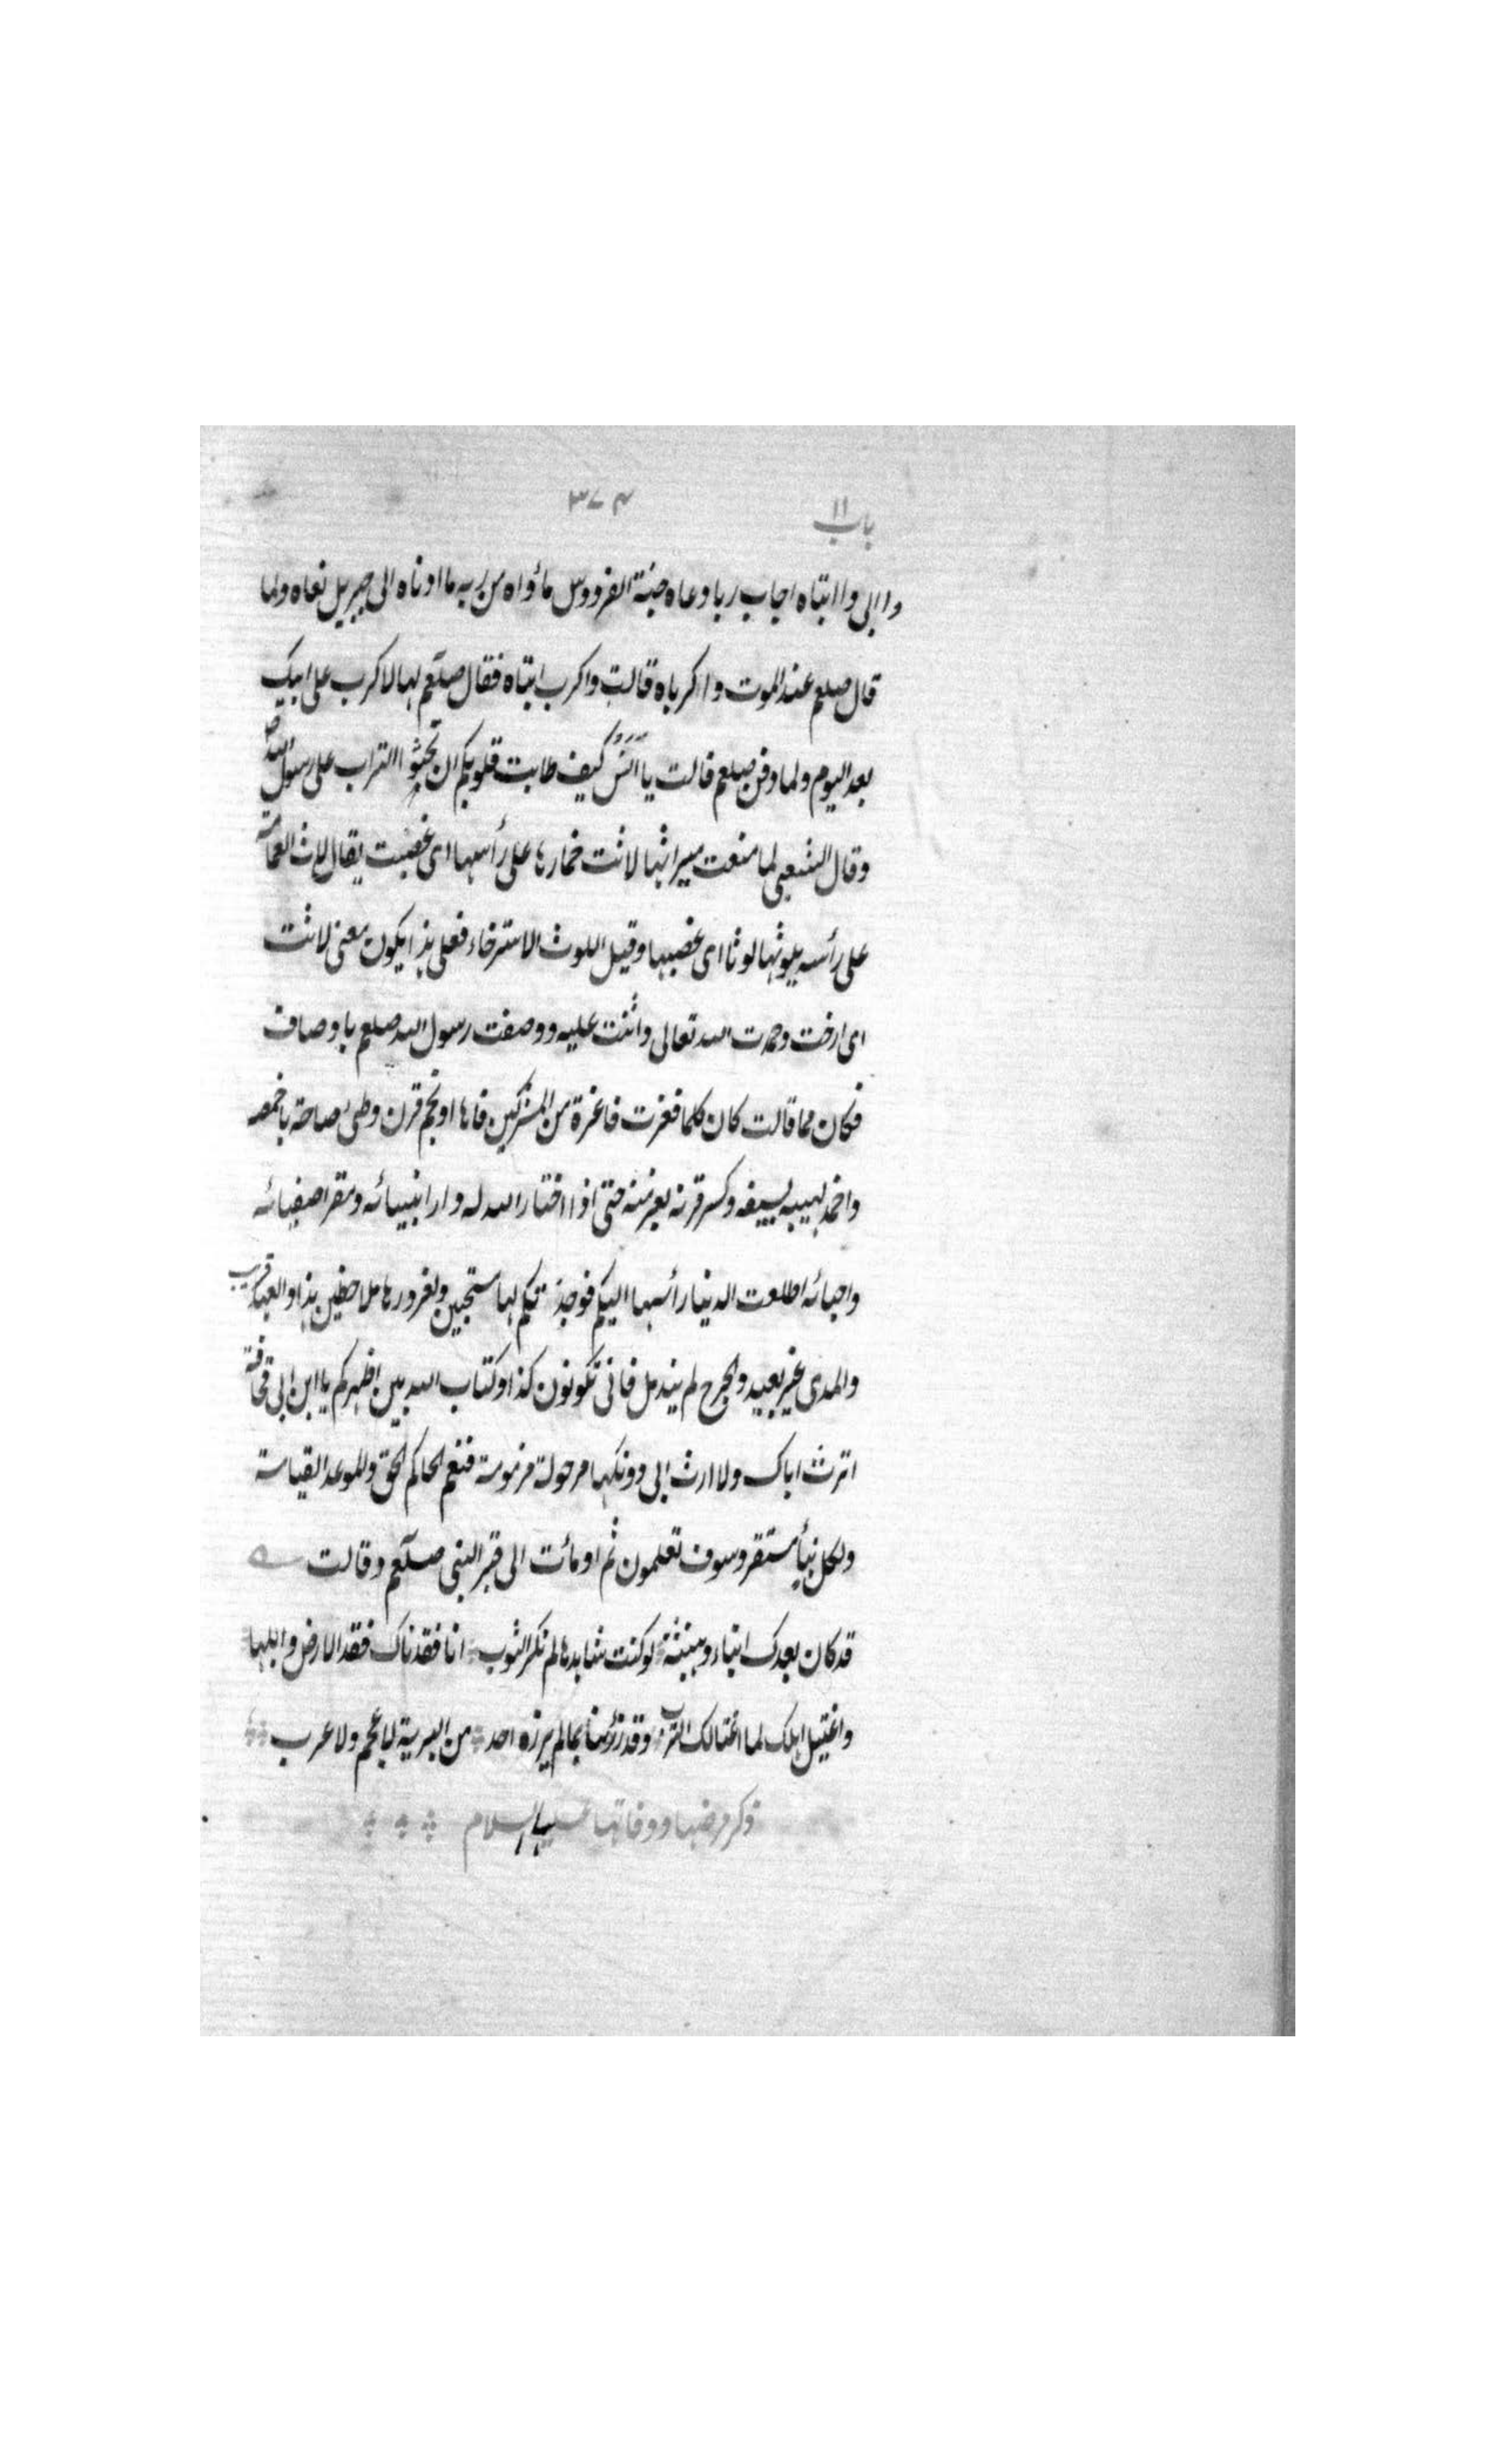 باب ١١ ٣٧٤
وا ابی وا ابتاه اجاب ربا دعاه جنة الفردوس مأواه من ربه ما ادناه الی جبریل نعاه ولما
قال صلعم عند الموت وا کرباه قالت واکرب ابتاه فقال صلعم لها لا کرب علی ابیک
بعد الیوم ولما دفن صلعم قالت یا انس کیف طابت قلوبکم ان تحثوا التراب علی رسول الله
وقال الشعبی لما منعت میراثها لاثت خمارها علی رأسها ای عصبت یقال لاث العمامة
علی رأسه یلوثها لوثا ای عصبها وقیل اللوث الاسترخاء فعلی هذا یکون معنی لاثت
ای ارخت وحمدت الله تعالی واثنت علیه ووصفت رسول الله صلعم باوصاف
فکان مما قالت کان کلما فغرت فاغرة من المشرکین فاها او نجم قرن وطئ صماخه باخمصه
واخمد لهیبه بسیفه وکسر قرنه بعزمته حتی اذا اختار الله له دار انبیائه ومقر اصفیائه
واحبائه اطلعت الدنیا رأسها الیکم فوجدتکم لها مستجیبین ولغرورها ملاحظین هذا والعهد قریب
والمدی غیر بعید والجرح لم یندمل فانی تکونون کذا وکتاب الله بین اظهرکم یا ابن ابی قحافة
اترث اباک ولا ارث ابی دونکها مرحولة مزمومة فنعم الحاکم الحق والموعد القیامة
ولکل نبأ مستقر وسوف تعلمون ثم اومأت الی قبر النبی صلعم وقالت
قد کان بعدک انباء وهنبثة لوکنت شاهدها لم تکثر الثوب انا فقدناک فقد الارض وابلها
واغتیل اهلک لما اغتالک الترب وقد رزئنا بما لم یرزه احد من البریة لا عجم ولا عرب
ذکر مرضها ووفاتها علیها السلام